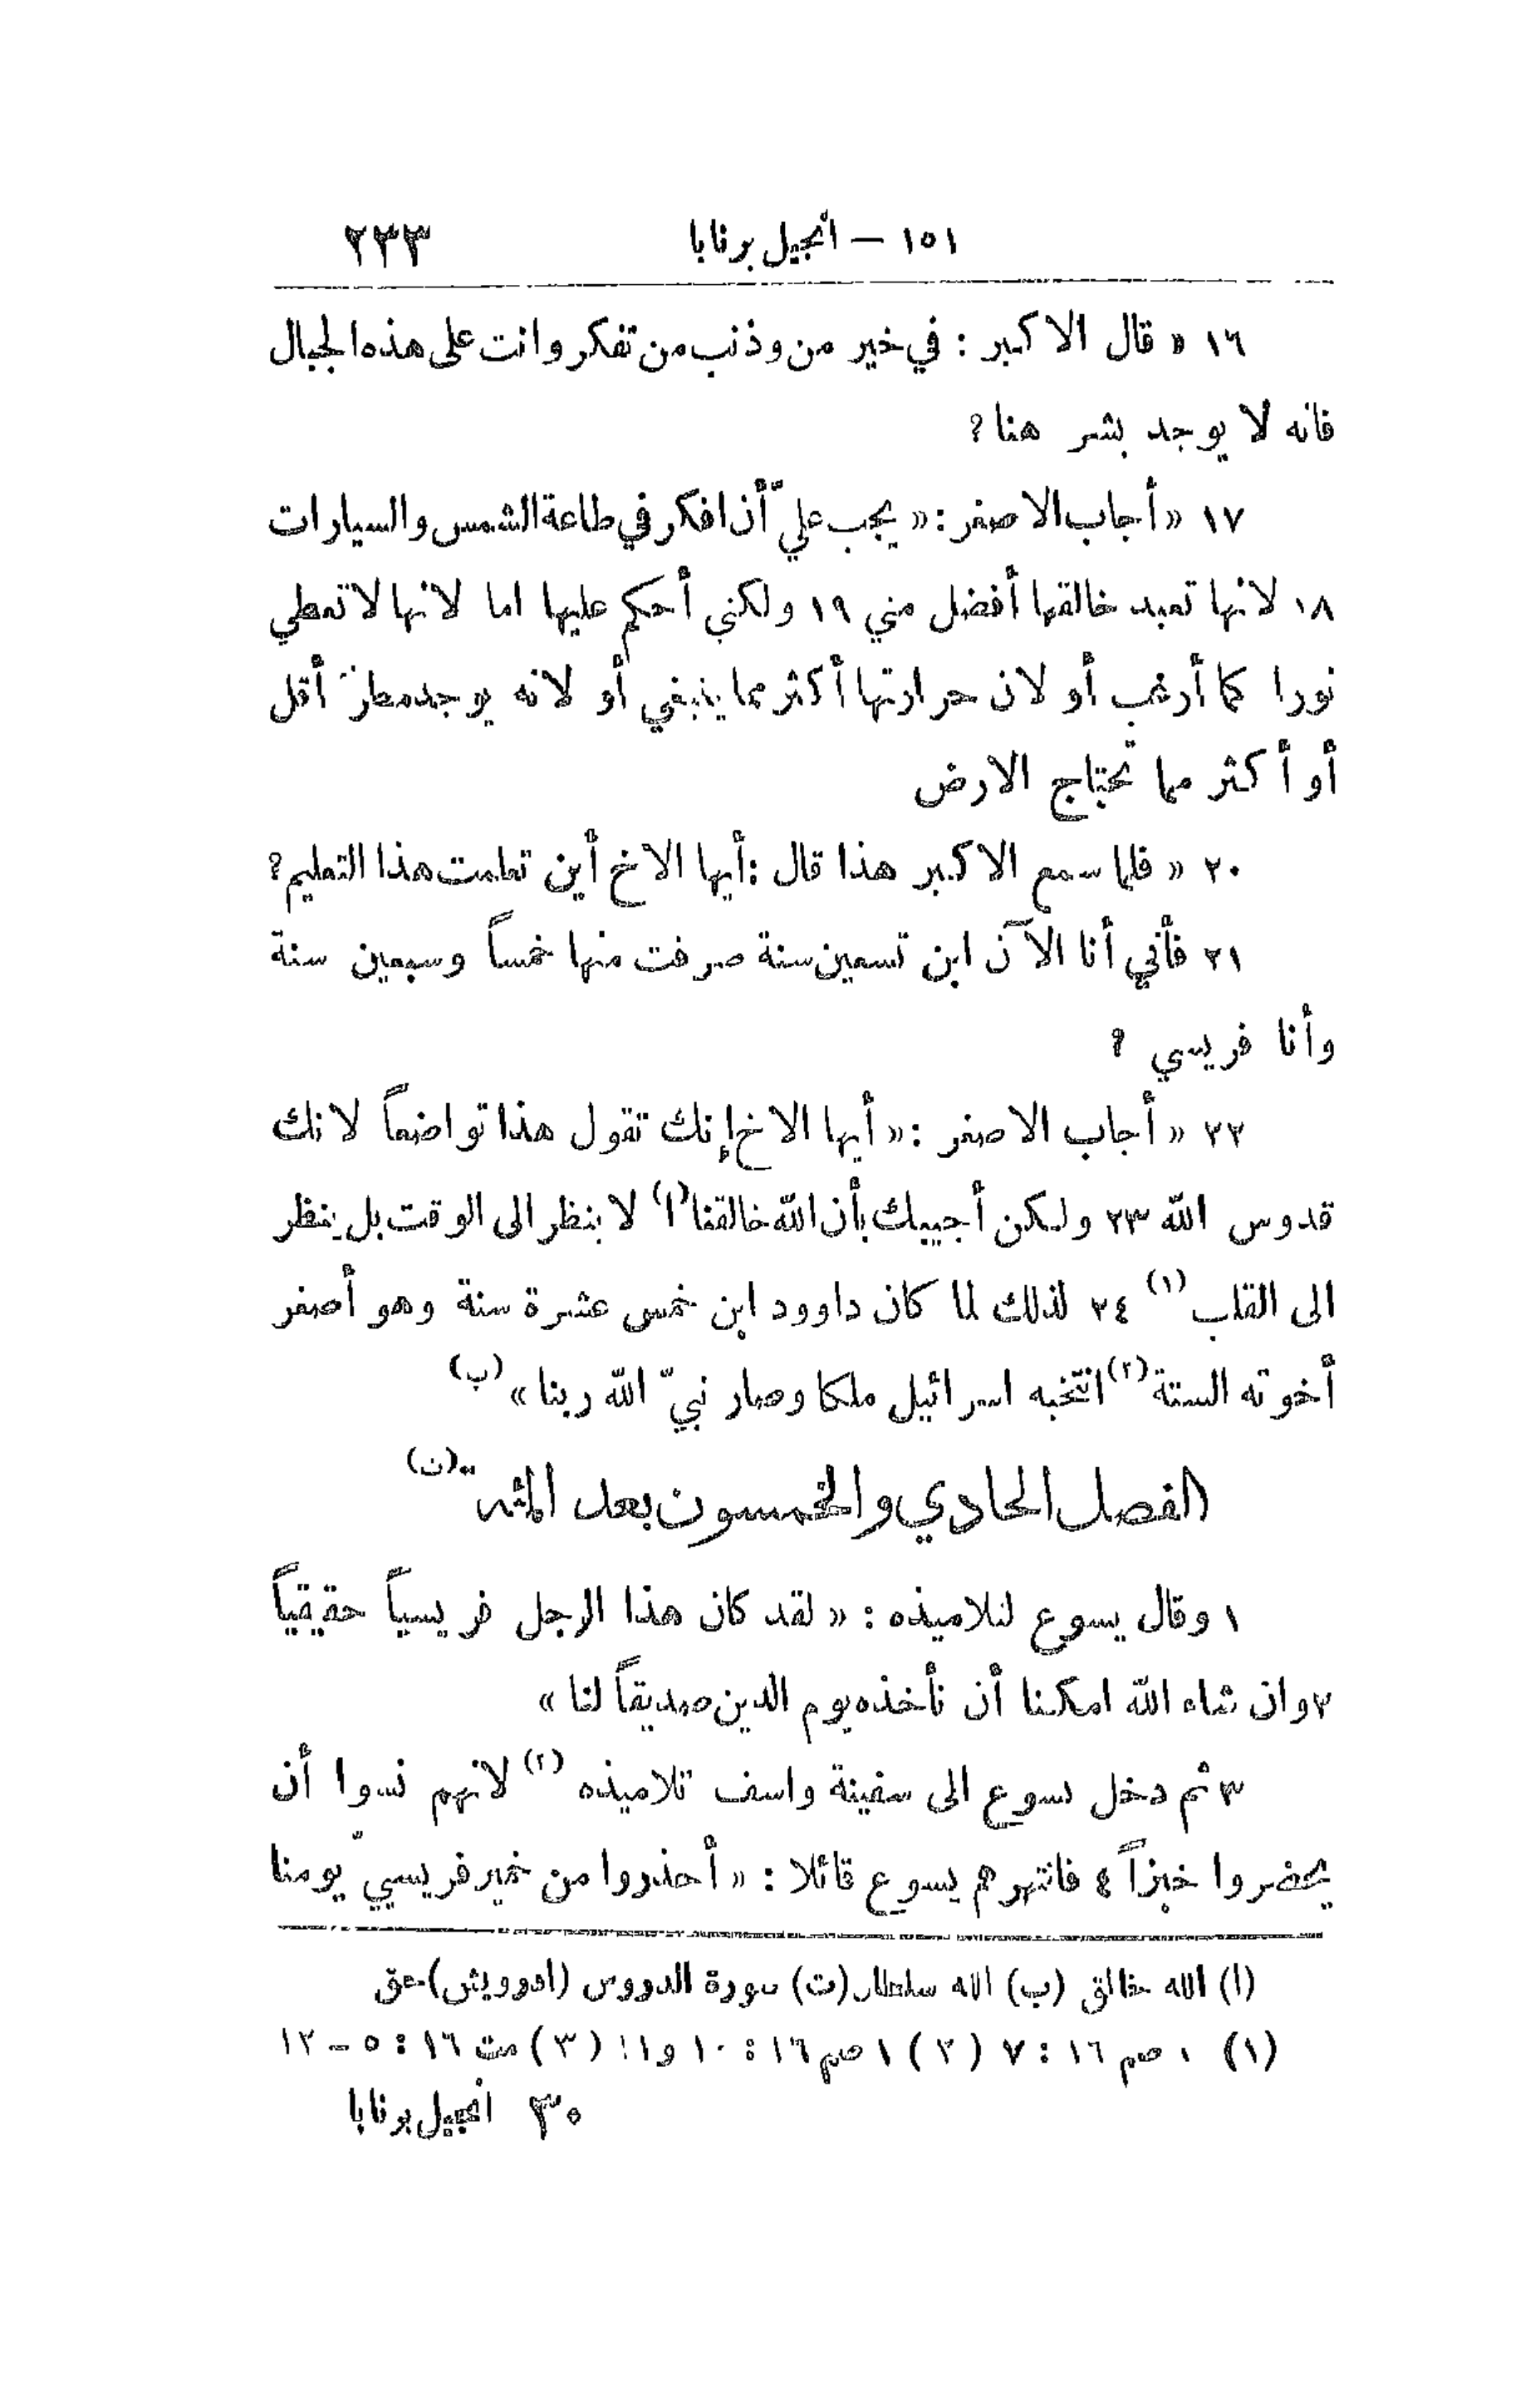 ١٥١ – انجيل برنابا ٢٣٣
١٦ « قال الاكبر : في خير من وذنب من تفكر وانت على هذه الجبال
فانه لا يوجد بشر هنا ؟
١٧ « أجاب الاصغر : « يجب عليّ أن افكر في طاعة الشمس والسيارات
١٨ لانها تعبد خالقها أفضل مني ١٩ ولكني أحكم عليها اما لانها لا تعطي
نورا كما أرغب أو لان حرارتها أكثر مما ينبغي أو لانه يوجد مطر أقل
أو أكثر مما تحتاج الارض
٢٠ « فلما سمع الاكبر هذا قال : أيها الاخ أين تعلمت هذا التعليم ؟
٢١ فأني أنا الآن ابن تسعين سنة صرفت منها خمساً وسبعين سنة
وأنا فريسي ؟
٢٢ « أجاب الاصغر : « أيها الاخ إنك تقول هذا تواضعاً لانك
قدوس الله ٢٣ ولكن أجيبك بأن الله خالقنا (ا) لا ينظر الى الوقت بل ينظر
الى القلب (١) ٢٤ لذلك لما كان داوود ابن خمس عشرة سنة وهو أصغر
أخوته الستة (٢) انتخبه اسرائيل ملكا وصار نبيّ الله ربنا » (ب)
الفصل الحادي والخمسون بعد المئة (ت)
١ وقال يسوع لتلاميذه : « لقد كان هذا الرجل فريسياً حقيقياً
٢ وان شاء الله امكننا أن نأخذه يوم الدين صديقاً لنا »
٣ ثم دخل يسوع الى سفينة واسف تلاميذه (٣) لانهم نسوا أن
يحضروا خبزاً ٤ فانتهرهم يسوع قائلا : « أحذروا من خمير فريسيّي يومنا
(ا) الله خالق (ب) الله سلطان (ت) سورة
(١) ١ صم ١٦ : ٧ (٢) ١ صم ١٦ : ١٠ و١١ (٣) مت ١٦ : ٥ – ١٢
٣٠ انجيل برنابا